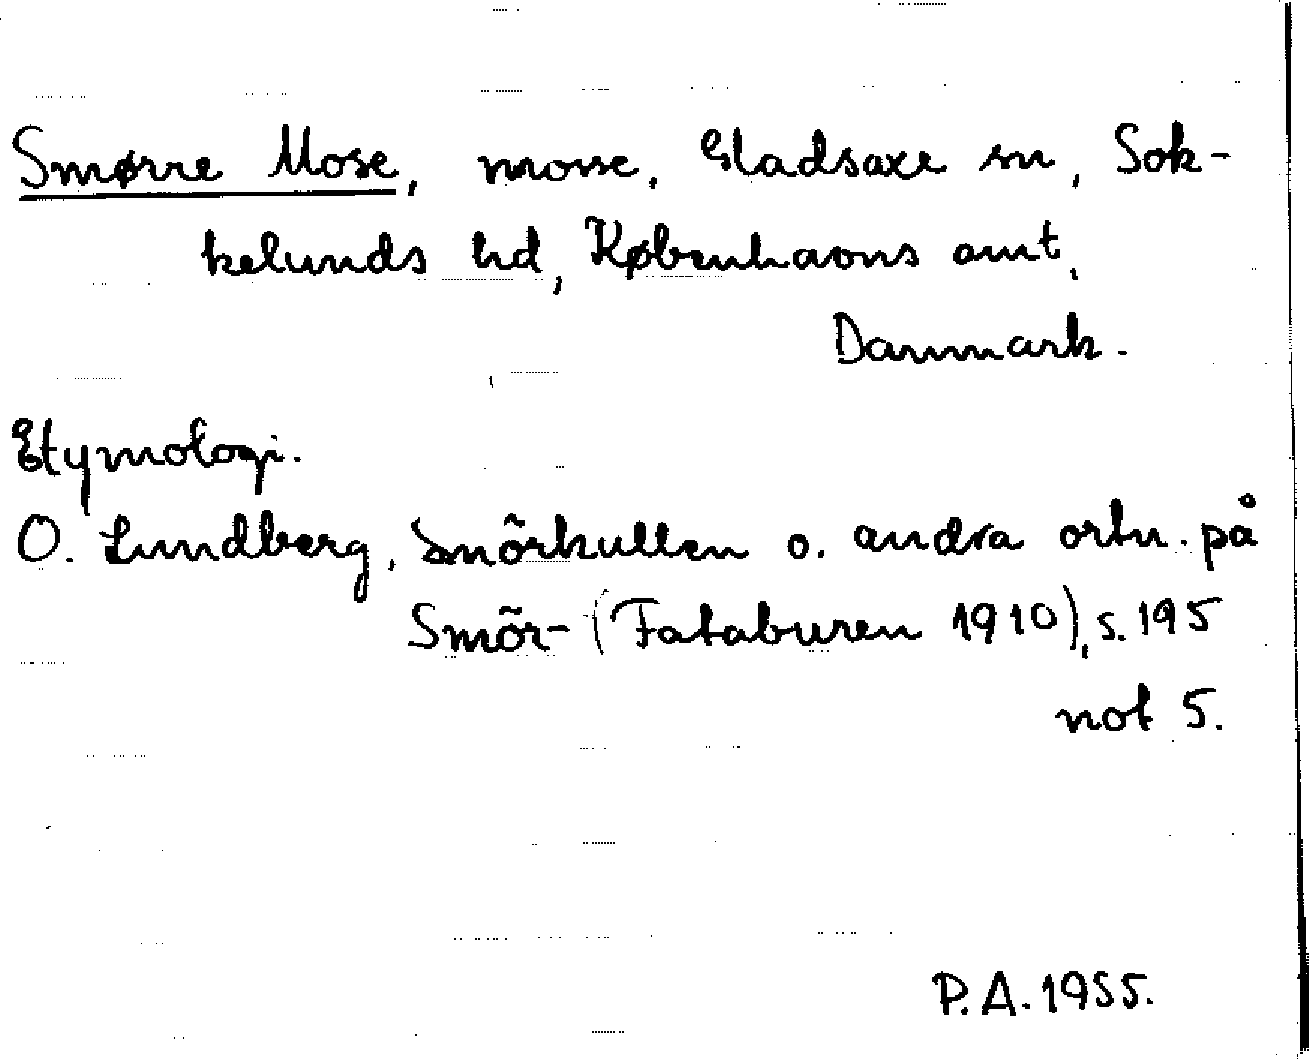 Smørre Mose, mosse, Gladsaxe sn, Sok-
kelunds hd, Københavns amt,
Danmark.
Etymologi.
O. Lundberg, Smörkullen o. andra ortn. på
Smör- (Fataburen 1910), s. 195
not 5.
P.A. 1955.